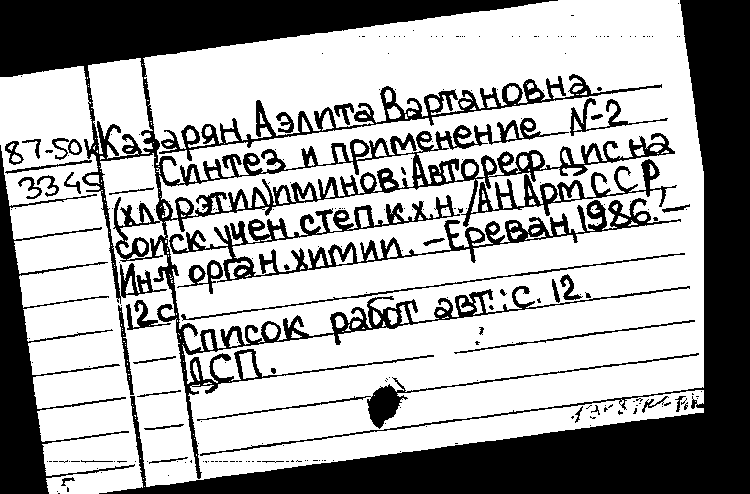 Казарян, Аэлита Вартановна.
87-50к
Синтез и применение N-2
334
(хлорэтил)иминов: Автореф. дис на
соиск. учен. степ. к.х.н. / АН АрмССР,
Ин-т орган. химии. – Ереван, 1986. –
12 с.
Список работ авт.: с. 12.
ДСП.